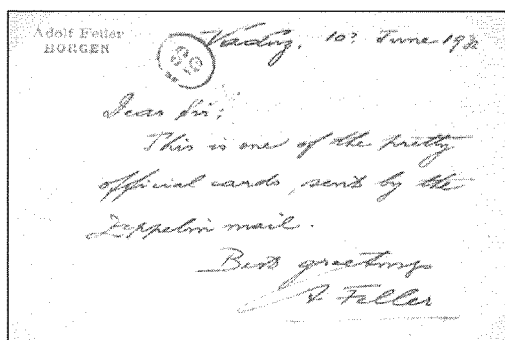 Adolf Feller
HORGEN
Vaduz, 10? June 193
59
Dear Sir;
This is one of the pretty
official cards, sent by the
Zeppelin mail.
Best greetings
A Feller